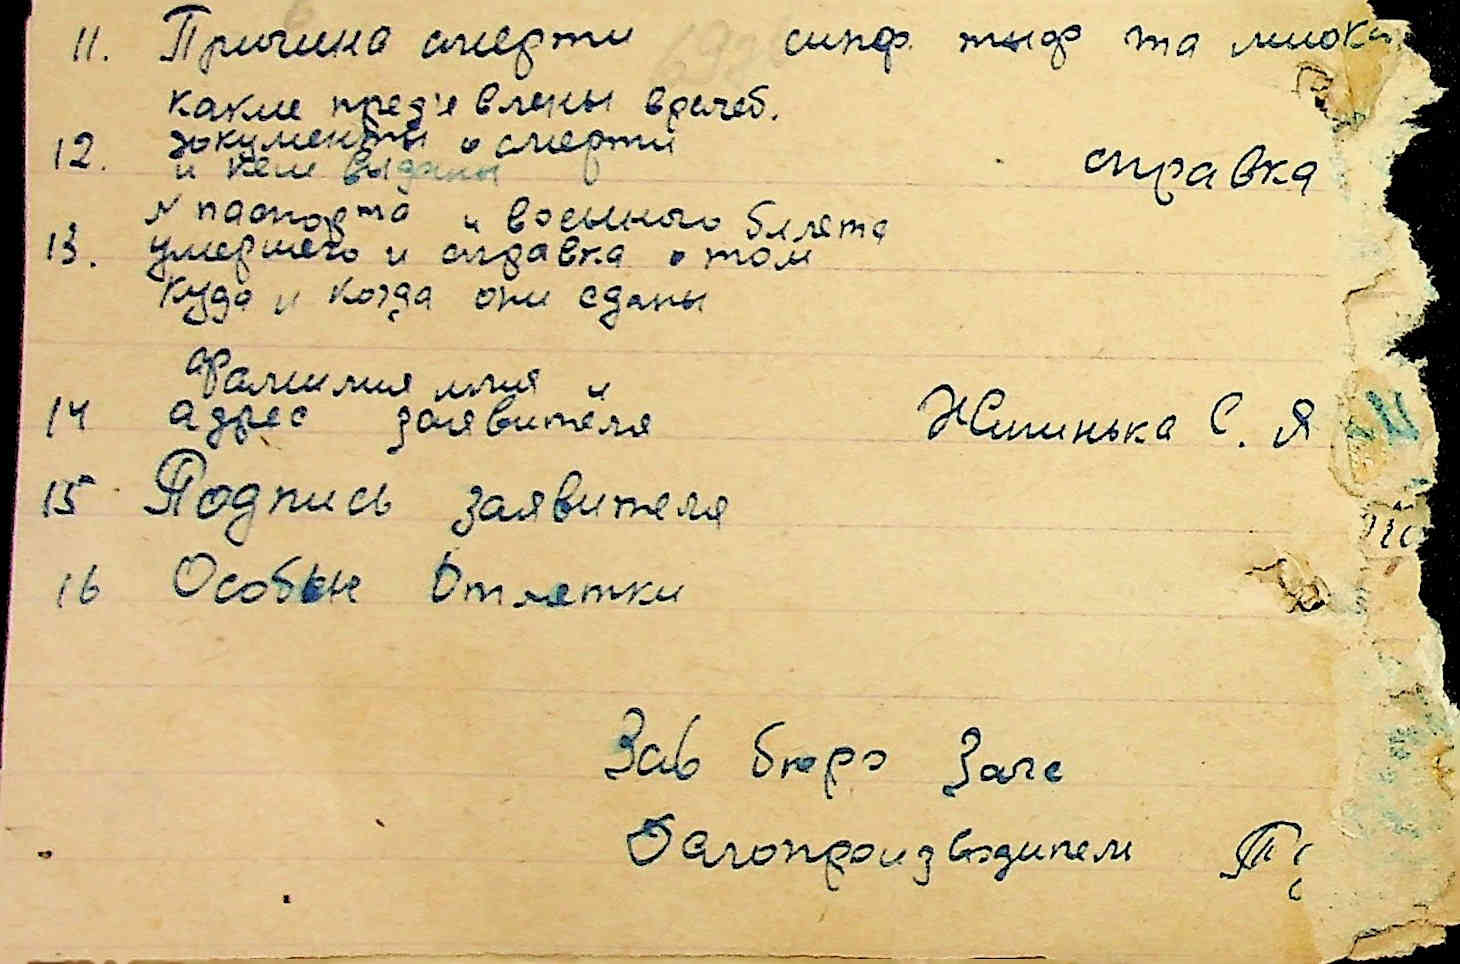 11. Причина смерти сипф тыф та миока
какие пред'явлены врачеб.
12. документы о смерти справка
и кем выданы
№ паспорта и военного билета
13. умершего и справка о том
куда и когда они сданы
фамилия имя и
14 адрес заявителя С. Я
15 Подпись заявителя
16 Особые отметки
Зав бюро Загс
Делопроизводитель